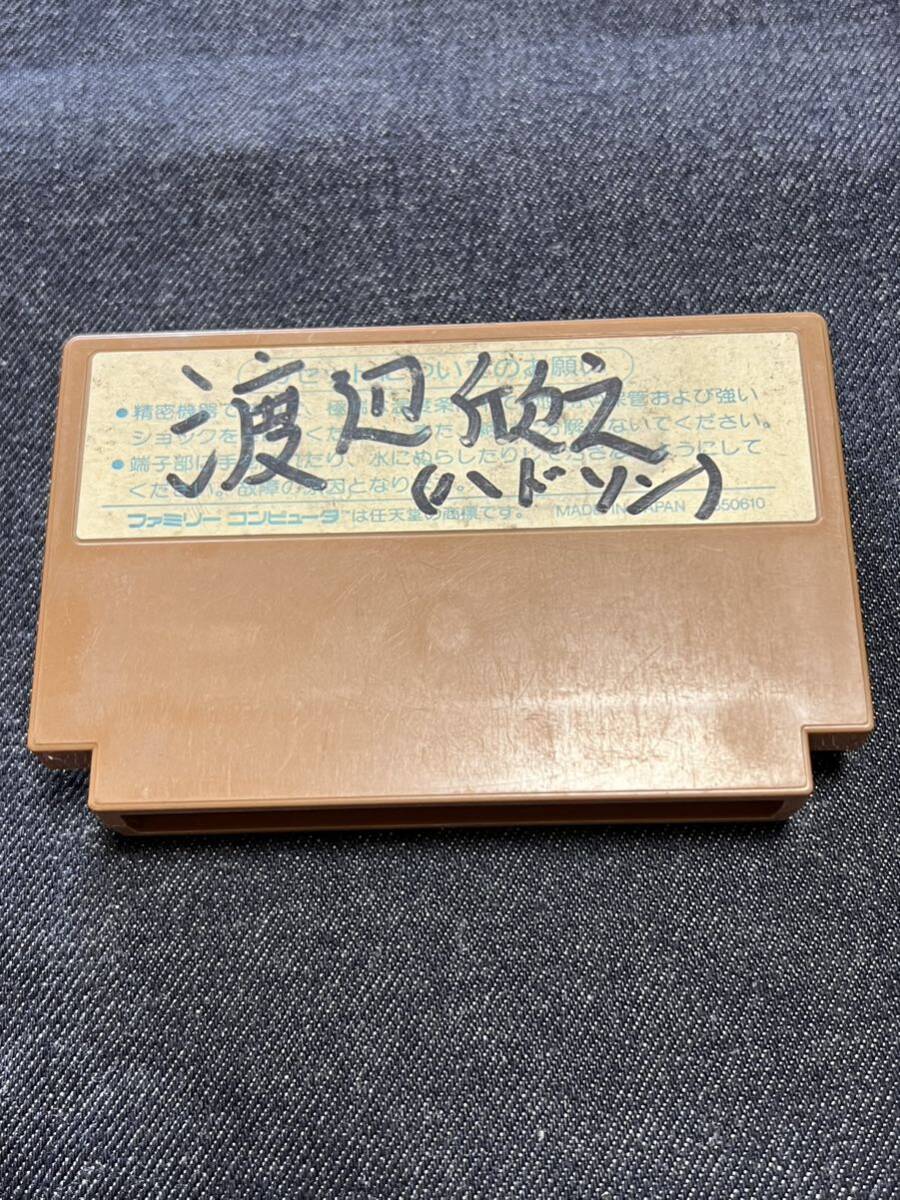 渡辺欣之
(ハドソン)
お願い
●精密機器で
管および強い
ショックを
ないでください。
●端子部は手
れたり、水にぬらしたり
ようにして
くだ
故障の原因となり
ファミリーコンピュータ™は任天堂の商標です。 MADE IN JAPAN